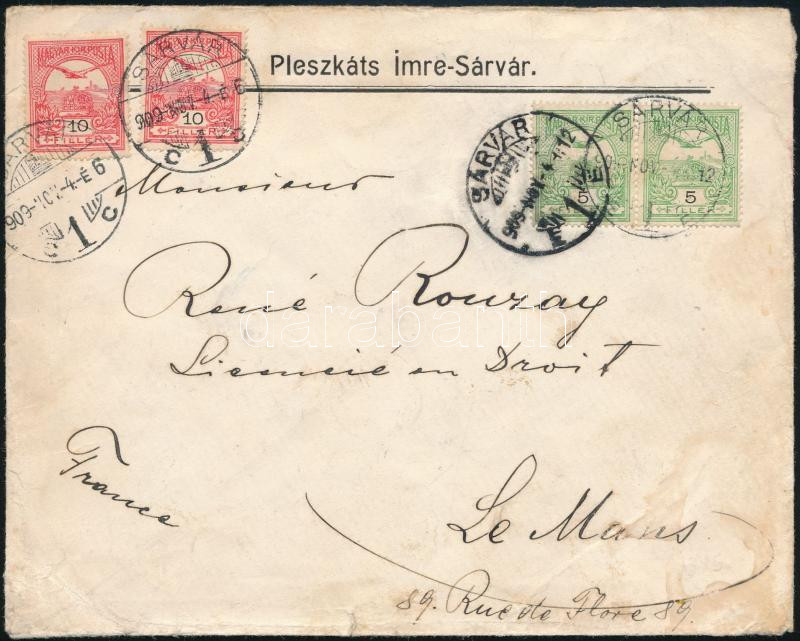 Pleszkáts Imre-Sárvár.
MAGYAR KIR. POSTA
10
FILLÉR
MAGYAR KIR. POSTA
10
FILLÉR
SÁRVÁR
909 NOV. -4.-É 6
1
C C
SÁRVÁR
909 NOV. -4.-É 6
1
C
SÁRVÁR
909 NOV. -4. É 12
1
E
MAGYAR KIR. POSTA
5
FILLÉR
MAGYAR KIR. POSTA
5
FILLÉR
SÁRVÁR
Monsieur
René Rouzay
darabanth
Licencié en Droit
France
Le Mans
89. Rue de Flore 89.